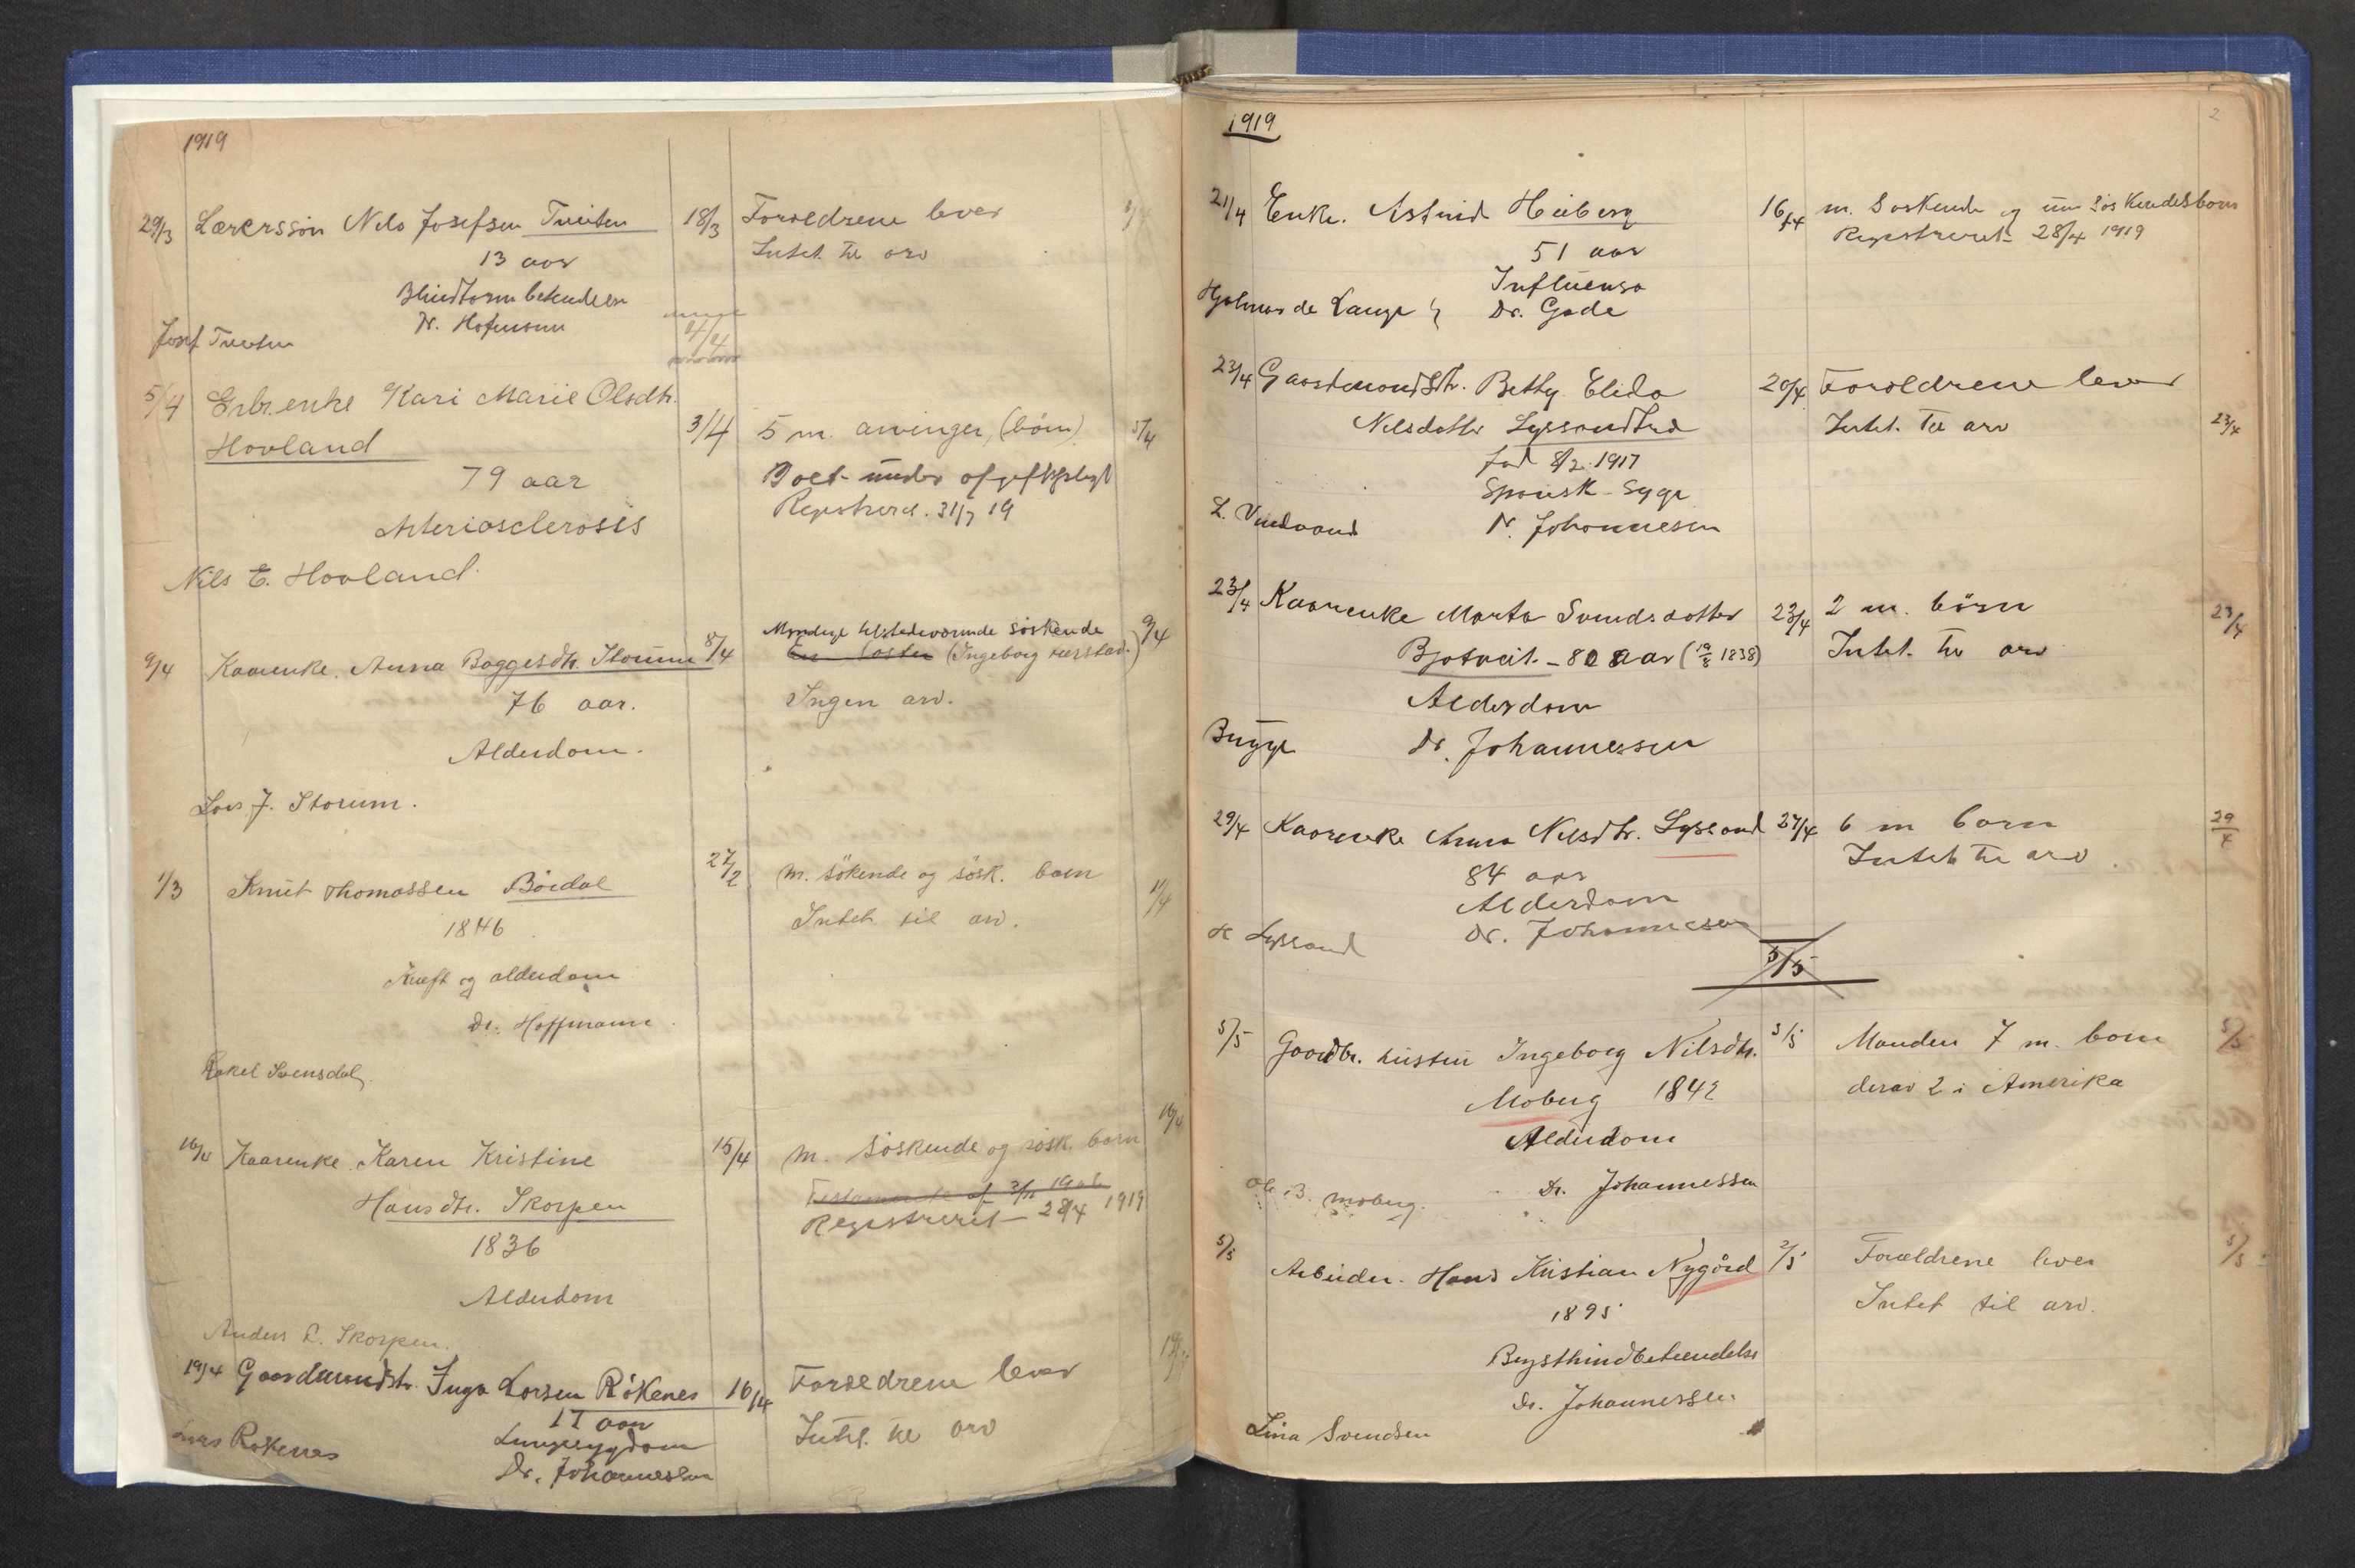 1919
29/3 Lærerssön Nils Josefsen Tveiten 18/3 Foreldrene lever
13 aar Intet til arv
Blindtarmbetendelse
Dr. Hofmann
Josef Tveiten 4/4
5/4 Enke Kari Marie Olsdtr.
Hovland 3/4 5 m. arvinger, (börn) 5/4
79 aar Boet under
Arteriosclerosis Registreret. 31/7 19
Nils E. Hovland.
9/4 Kaarenke. Anna Baggesdtr. Storum 8/4 Myndige tilstedeværende söskende 9/4
En söster (Ingeborg
76 aar. Ingen arv.
Alderdom.
Lars J. Storum.
1/3 Knut Thomassen Böedal 27/2 m. sökende og sösk. barn 11/4
1846. Intet til arv.
Kræft og alderdom
Dr. Hoffmann.
Rakel Svensdal.
16/4 Kaarenke. Karen Kristine 15/4 m. söskende og sösk. barn 16/4
Hansdtr. Skorpen Testamente af 1906
1836 Registreret 28/4 1919
Alderdom
Anders L. Skorpen.
19/4 Gaardmandstr. Inga Larsen Rökenes 16/4 Foreldrene lever
17 aar Intet til arv
Lars Rökenes Lungesygdom
Dr. Johannessen
1919
2
21/4 Enke. Astrid Heiberg 16/4 m. Söskende og um. Söskendesbarn
51 aar Registreret 28/4 1919
Influensa
Hjalmar de Lange Dr. Gade
23/4 Gaardmandstr. Betty Elida 20/4 Foreldrene lever
Nilsdatter Lyssandtræ Intet til arv 23/4
fød 8/2 1917
Spansk Syge
L. Vindvand Dr. Johannesen
23/4 Kaarenke Marta Svendsdotter 23/4 2 m. börn 23/4
Bjotveit - 80 aar (19/8 1838) Intet til arv
Alderdom
Bugge Dr. Johannessen
29/4 Kaarenke Anna Nilsdtr. Lyssand 27/4 6 m barn 29/4
84 aar Intet til arv
Alderdom
H Lyssand Dr. Johannesen
5/5
5/5 Gaardbr. hustru Ingeborg Nilsdtr. 3/5 Manden 7 m. barn 5/5
Moberg 1842 derav 2 i Amerika
Alderdom
Ole B. Moberg. Dr. Johannessen
5/5 Arbeider. Hans Kristian Nygård 2/5 Forældrene lever 5/5
1895 Intet til arv.
Brysthindbetændelse
Dr. Johannessen
Lina Svendsen